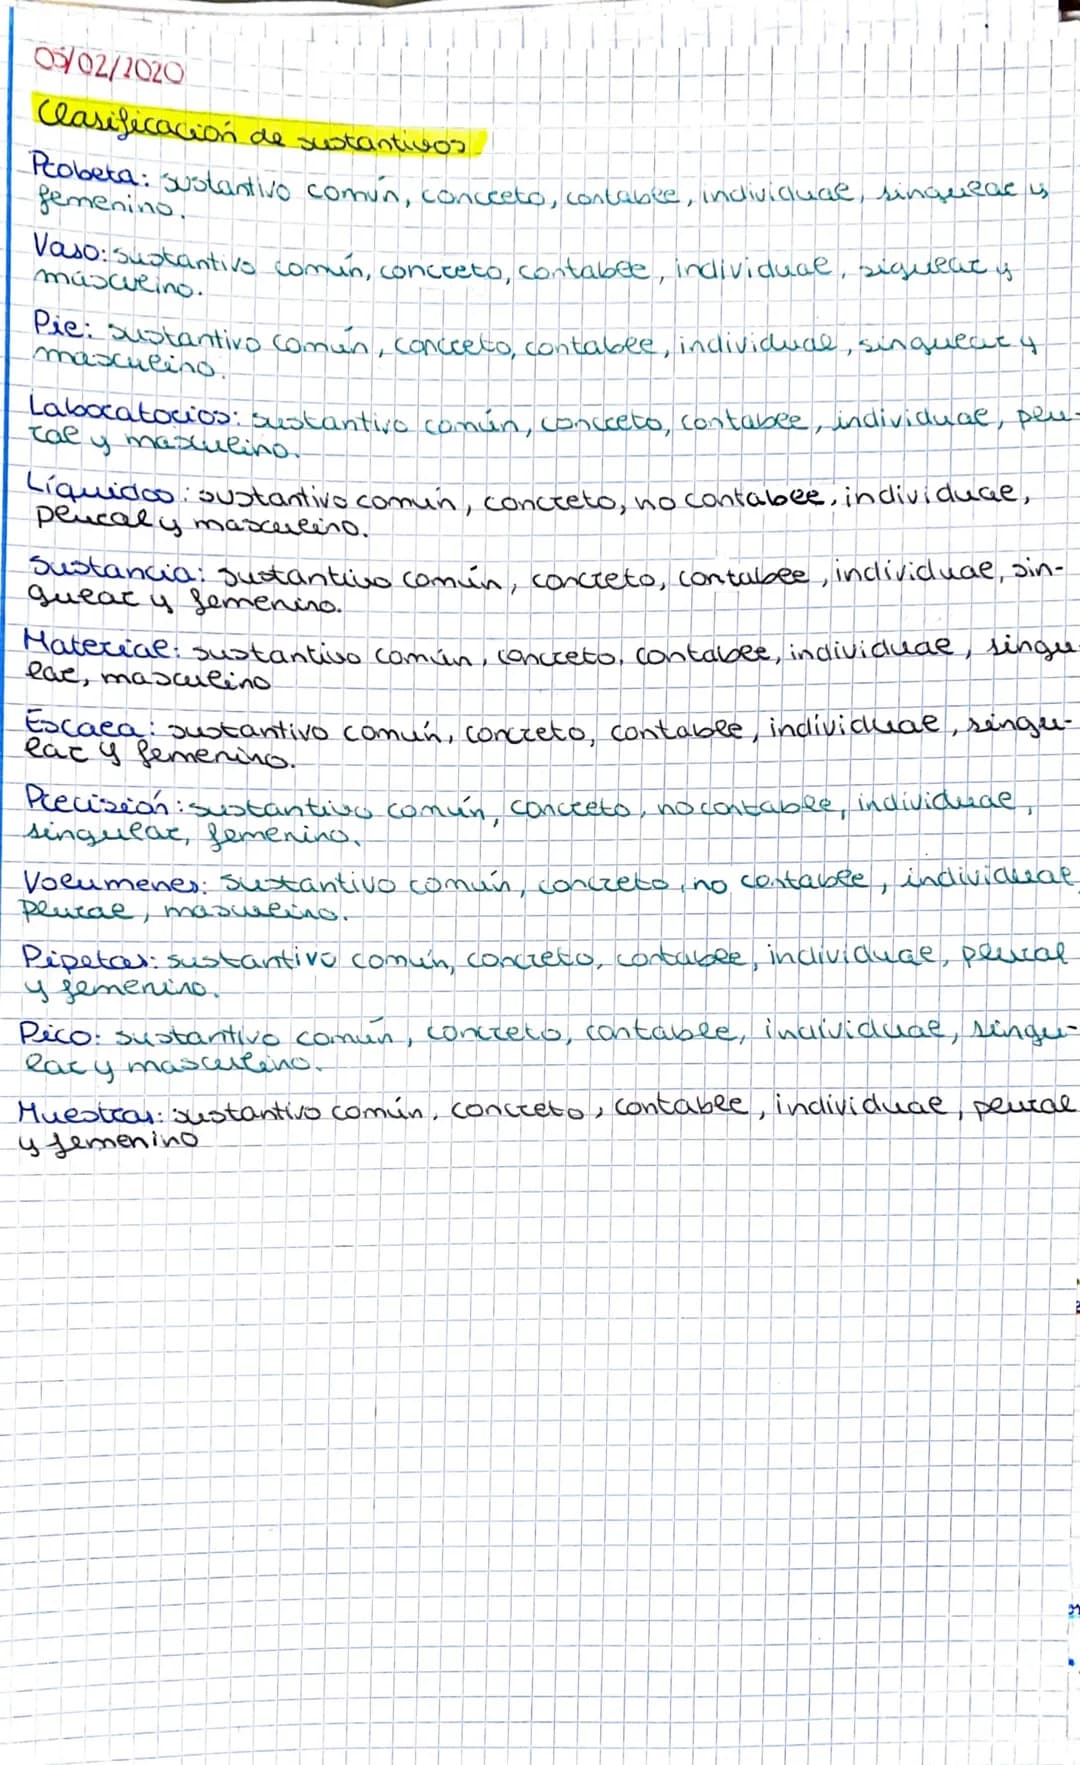 05/02/2020
Clasificación de sustantivos
Probeta: sustantivo común, concreto, contable, individual, singular y
femenino.
Vaso: sustantivo común, concreto, contable, individual, sigular y
masculino.
Pie: sustantivo común, concreto, contable, individual, singular y
masculino.
Laboratorios: sustantivo común, concreto, contable, individual, plu-
ral y masculino.
Líquidos: sustantivo común, concreto, no contable, individual,
plural y masculino.
Sustancia: sustantivo común, concreto, contable, individual, sin-
gular y femenino.
Material: sustantivo común, concreto, contable, individual, singu-
lar, masculino
Escala: sustantivo común, concreto, contable, individual, singu-
lar y femenino.
Precisión: sustantivo común, concreto, no contable, individual,
singular, femenino.
Volumenes: sustantivo común, concreto, no contable, individual
plural, masculino.
Pipetas: sustantivo común, concreto, contable, individual, plural
y femenino.
Pico: sustantivo común, concreto, contable, individual, singu-
lar y masculino.
Muestras: sustantivo común, concreto, contable, individual, plural
y femenino